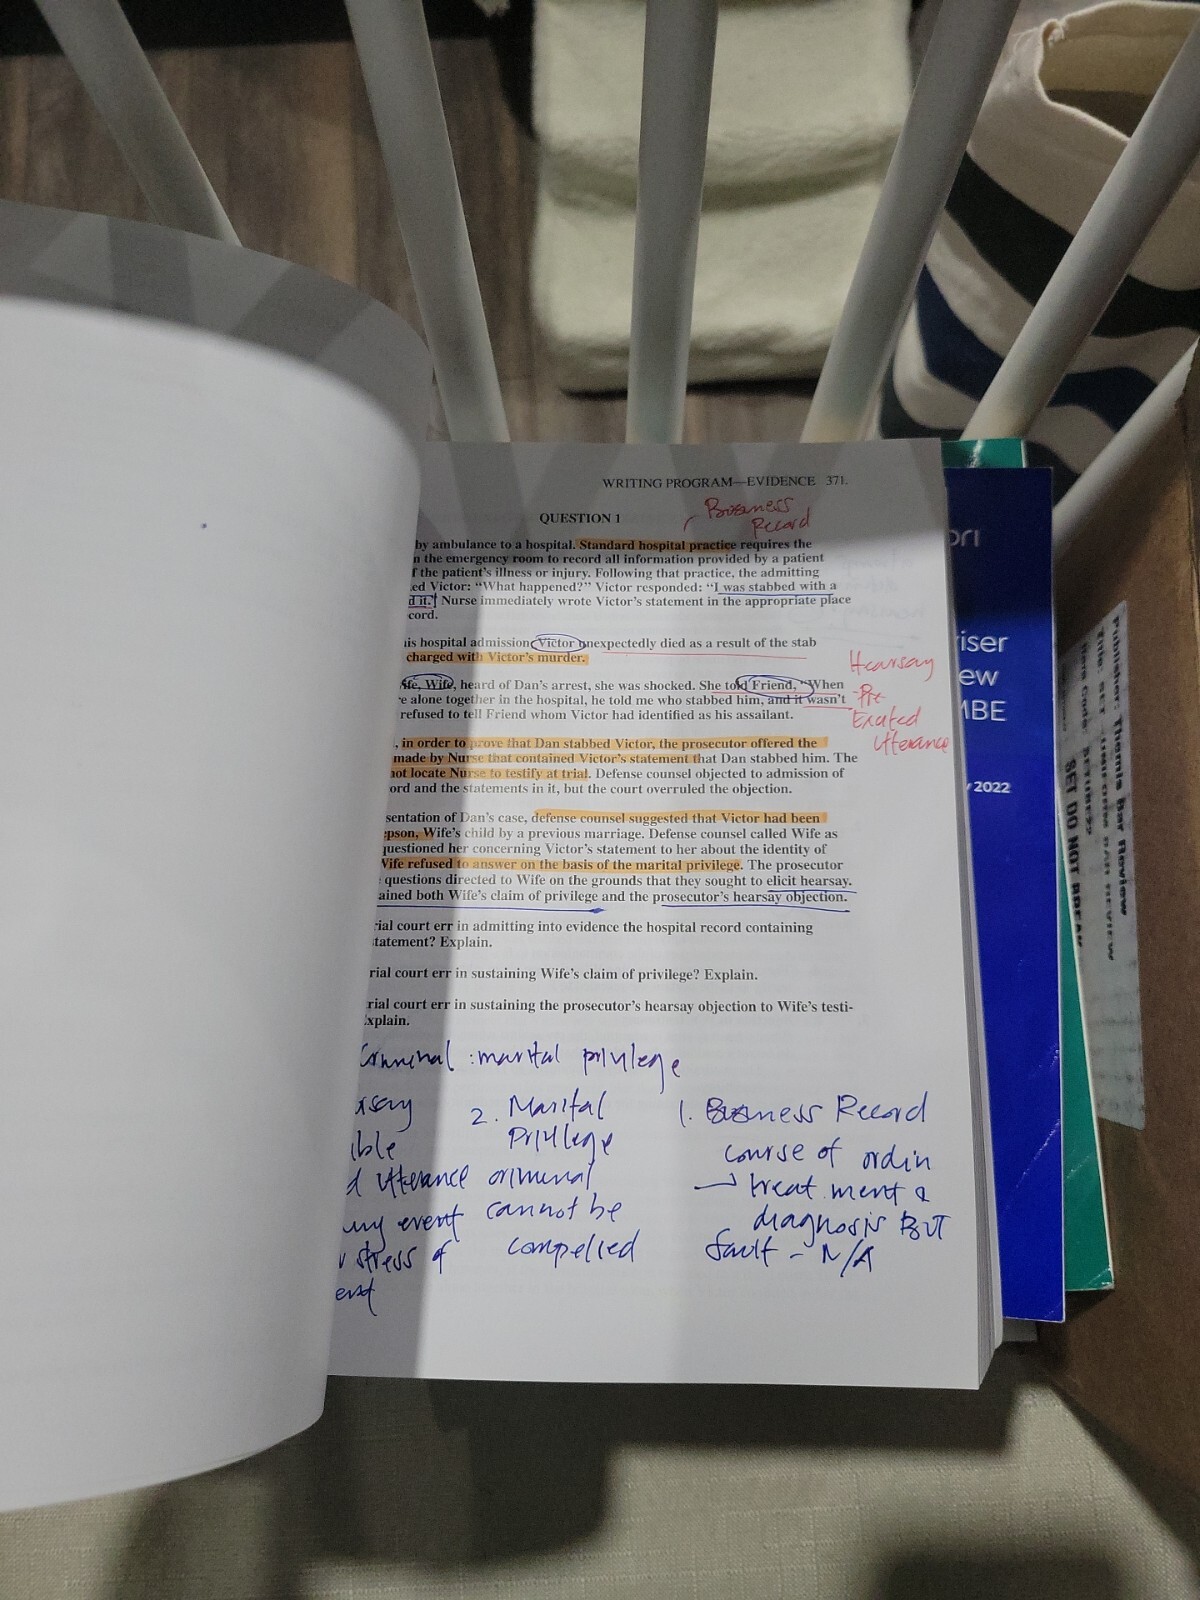 WRITING PROGRAM—EVIDENCE 371.
Business
Record
QUESTION 1
by ambulance to a hospital. Standard hospital practice requires the
n the emergency room to record all information provided by a patient
f the patient's illness or injury. Following that practice, the admitting
ed Victor: “What happened?” Victor responded: “I was stabbed with a
d it.” Nurse immediately wrote Victor's statement in the appropriate place
cord.
his hospital admission Victor unexpectedly died as a result of the stab
charged with Victor's murder.
Hearsay
ife, Wife, heard of Dan's arrest, she was shocked. She told Friend, “When
re alone together in the hospital, he told me who stabbed him, and it wasn't
refused to tell Friend whom Victor had identified as his assailant.
Exated
Utterance
, in order to prove that Dan stabbed Victor, the prosecutor offered the
made by Nurse that contained Victor's statement that Dan stabbed him. The
not locate Nurse to testify at trial. Defense counsel objected to admission of
ord and the statements in it, but the court overruled the objection.
sentation of Dan's case, defense counsel suggested that Victor had been
epson, Wife's child by a previous marriage. Defense counsel called Wife as
questioned her concerning Victor's statement to her about the identity of
Wife refused to answer on the basis of the marital privilege. The prosecutor
questions directed to Wife on the grounds that they sought to elicit hearsay.
ained both Wife's claim of privilege and the prosecutor's hearsay objection.
rial court err in admitting into evidence the hospital record containing
tatement? Explain.
rial court err in sustaining Wife's claim of privilege? Explain.
rial court err in sustaining the prosecutor's hearsay objection to Wife's testi-
xplain.
Criminal : marital privilege
rsay
ible
d utterance
event
stress of
2. Marital
Privilege
criminal
cannot be
compelled
1. Business Record
course of ordin
→ treatment &
diagnosis BUT
fault - N/A
ori
iser
ew
MBE
2022
Publisher: Themis Bar Review
SET DO NOT BREAK